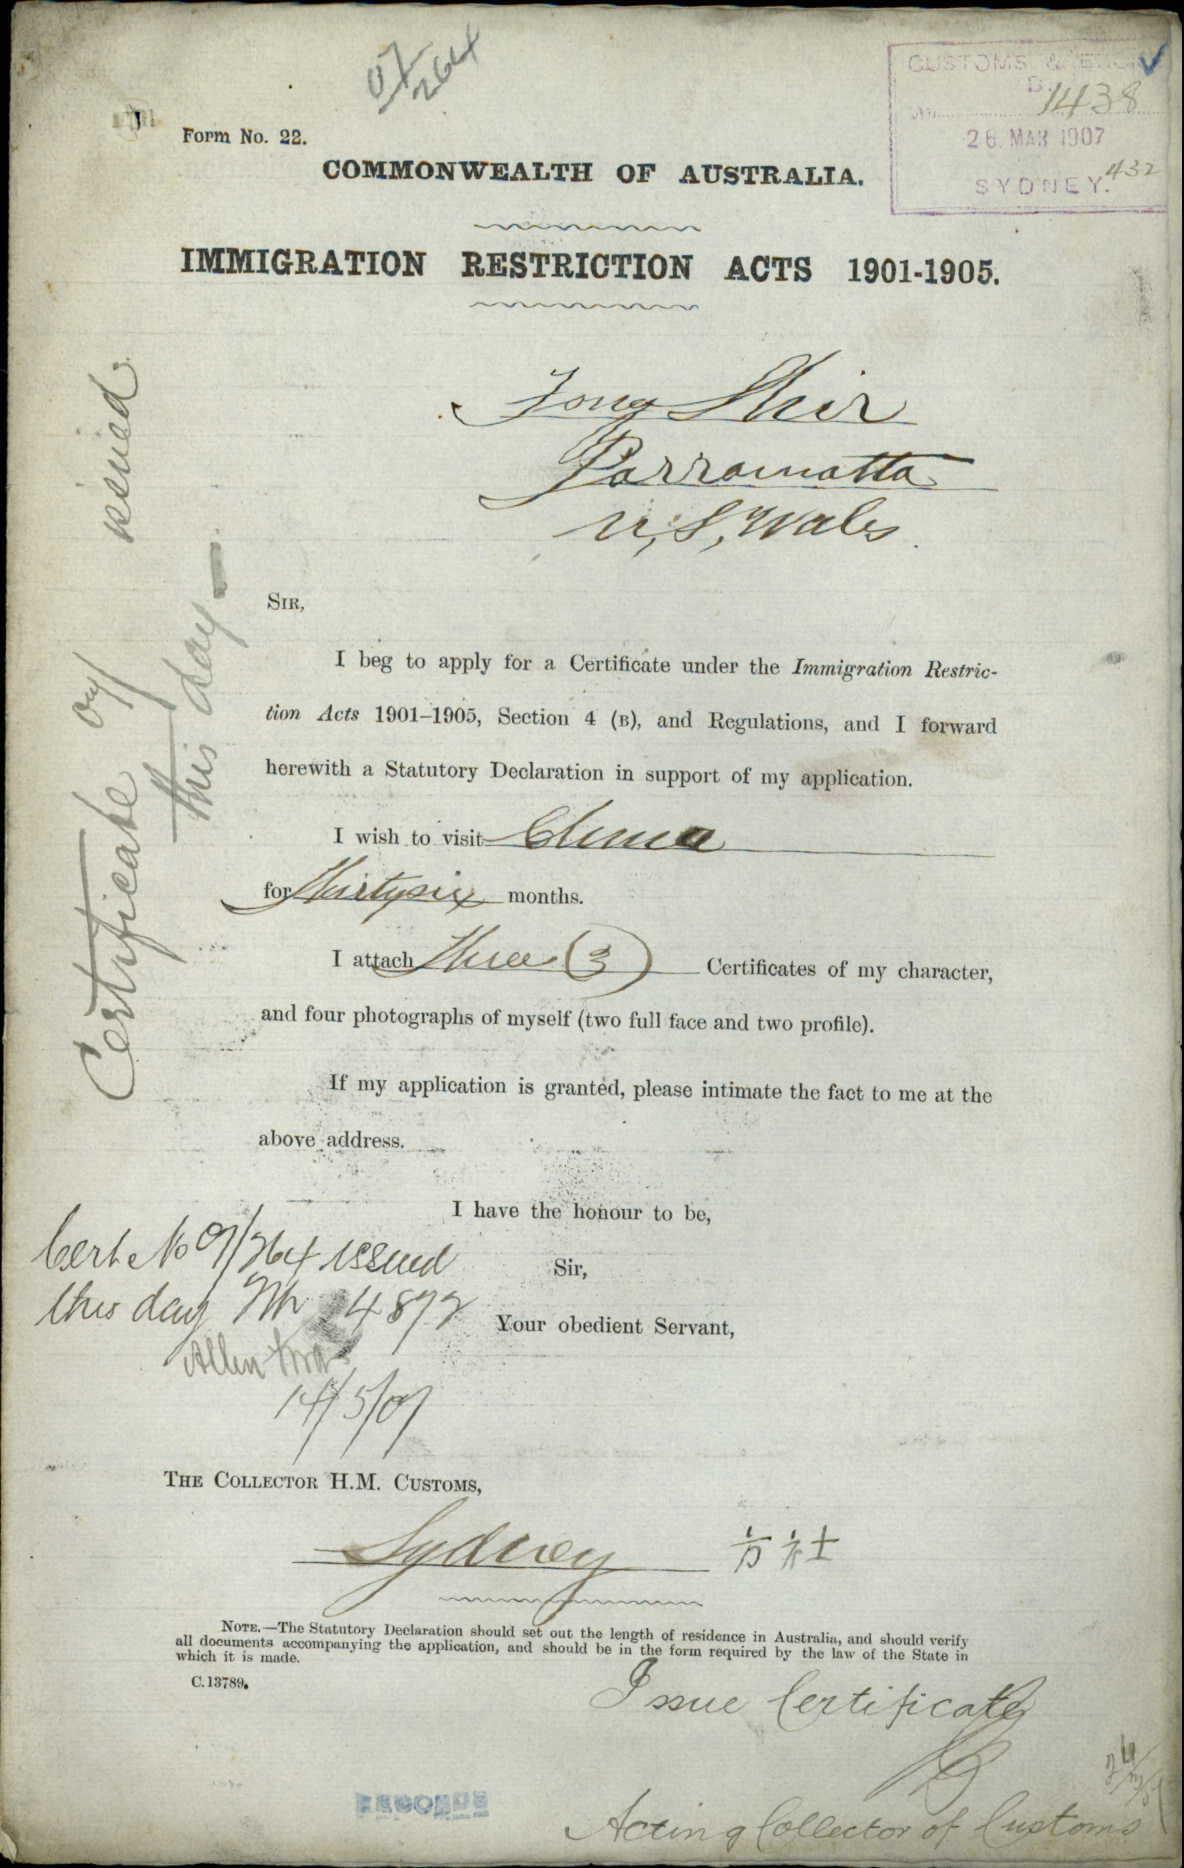 07/264
CUSTOMS & EXCISE
1438
26 MAR 1907
432
SYDNEY.
Form No. 22.
COMMONWEALTH OF AUSTRALIA.
IMMIGRATION RESTRICTION ACTS 1901-1905.
Fong Shir
Parramatta
N, S, Wales.
SIR,
I beg to apply for a Certificate under the Immigration Restric-
tion Acts 1901–1905, Section 4 (B), and Regulations, and I forward
herewith a Statutory Declaration in support of my application.
I wish to visit China
for Thirtysix months.
I attach Three (3) Certificates of my character,
and four photographs of myself (two full face and two profile).
If my application is granted, please intimate the fact to me at the
above address.
I have the honour to be,
Sir,
Your obedient Servant,
Certificate issued
this day
Cert No 07/264 issued
this day 4872
Allen
14/5/07
THE COLLECTOR H.M. CUSTOMS,
Sydney
NOTE.—The Statutory Declaration should set out the length of residence in Australia, and should verify
all documents accompanying the application, and should be in the form required by the law of the State in
which it is made.
C.13789.
Issue Certificate
Acting Collector of Customs
RECORDS